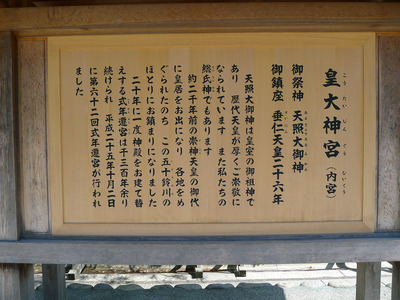 皇大神宮(内宮)
こうたいじんぐう ないくう
御祭神 天照大御神
御鎮座 垂仁天皇二十六年
天照大御神は皇室の御祖神で
あり 歴代天皇が厚くご崇敬に
なられています また私たちの
総氏神でもあります
約二千年前の崇神天皇の御代
に皇居をお出になり 各地をめ
ぐられたのち この五十鈴川の
ほとりにお鎮まりになりました
二十年に一度神殿をお建て替
えする式年遷宮は千三百年余り
続けられ 平成二十五年十月二日
に第六十二回式年遷宮が行われ
ました